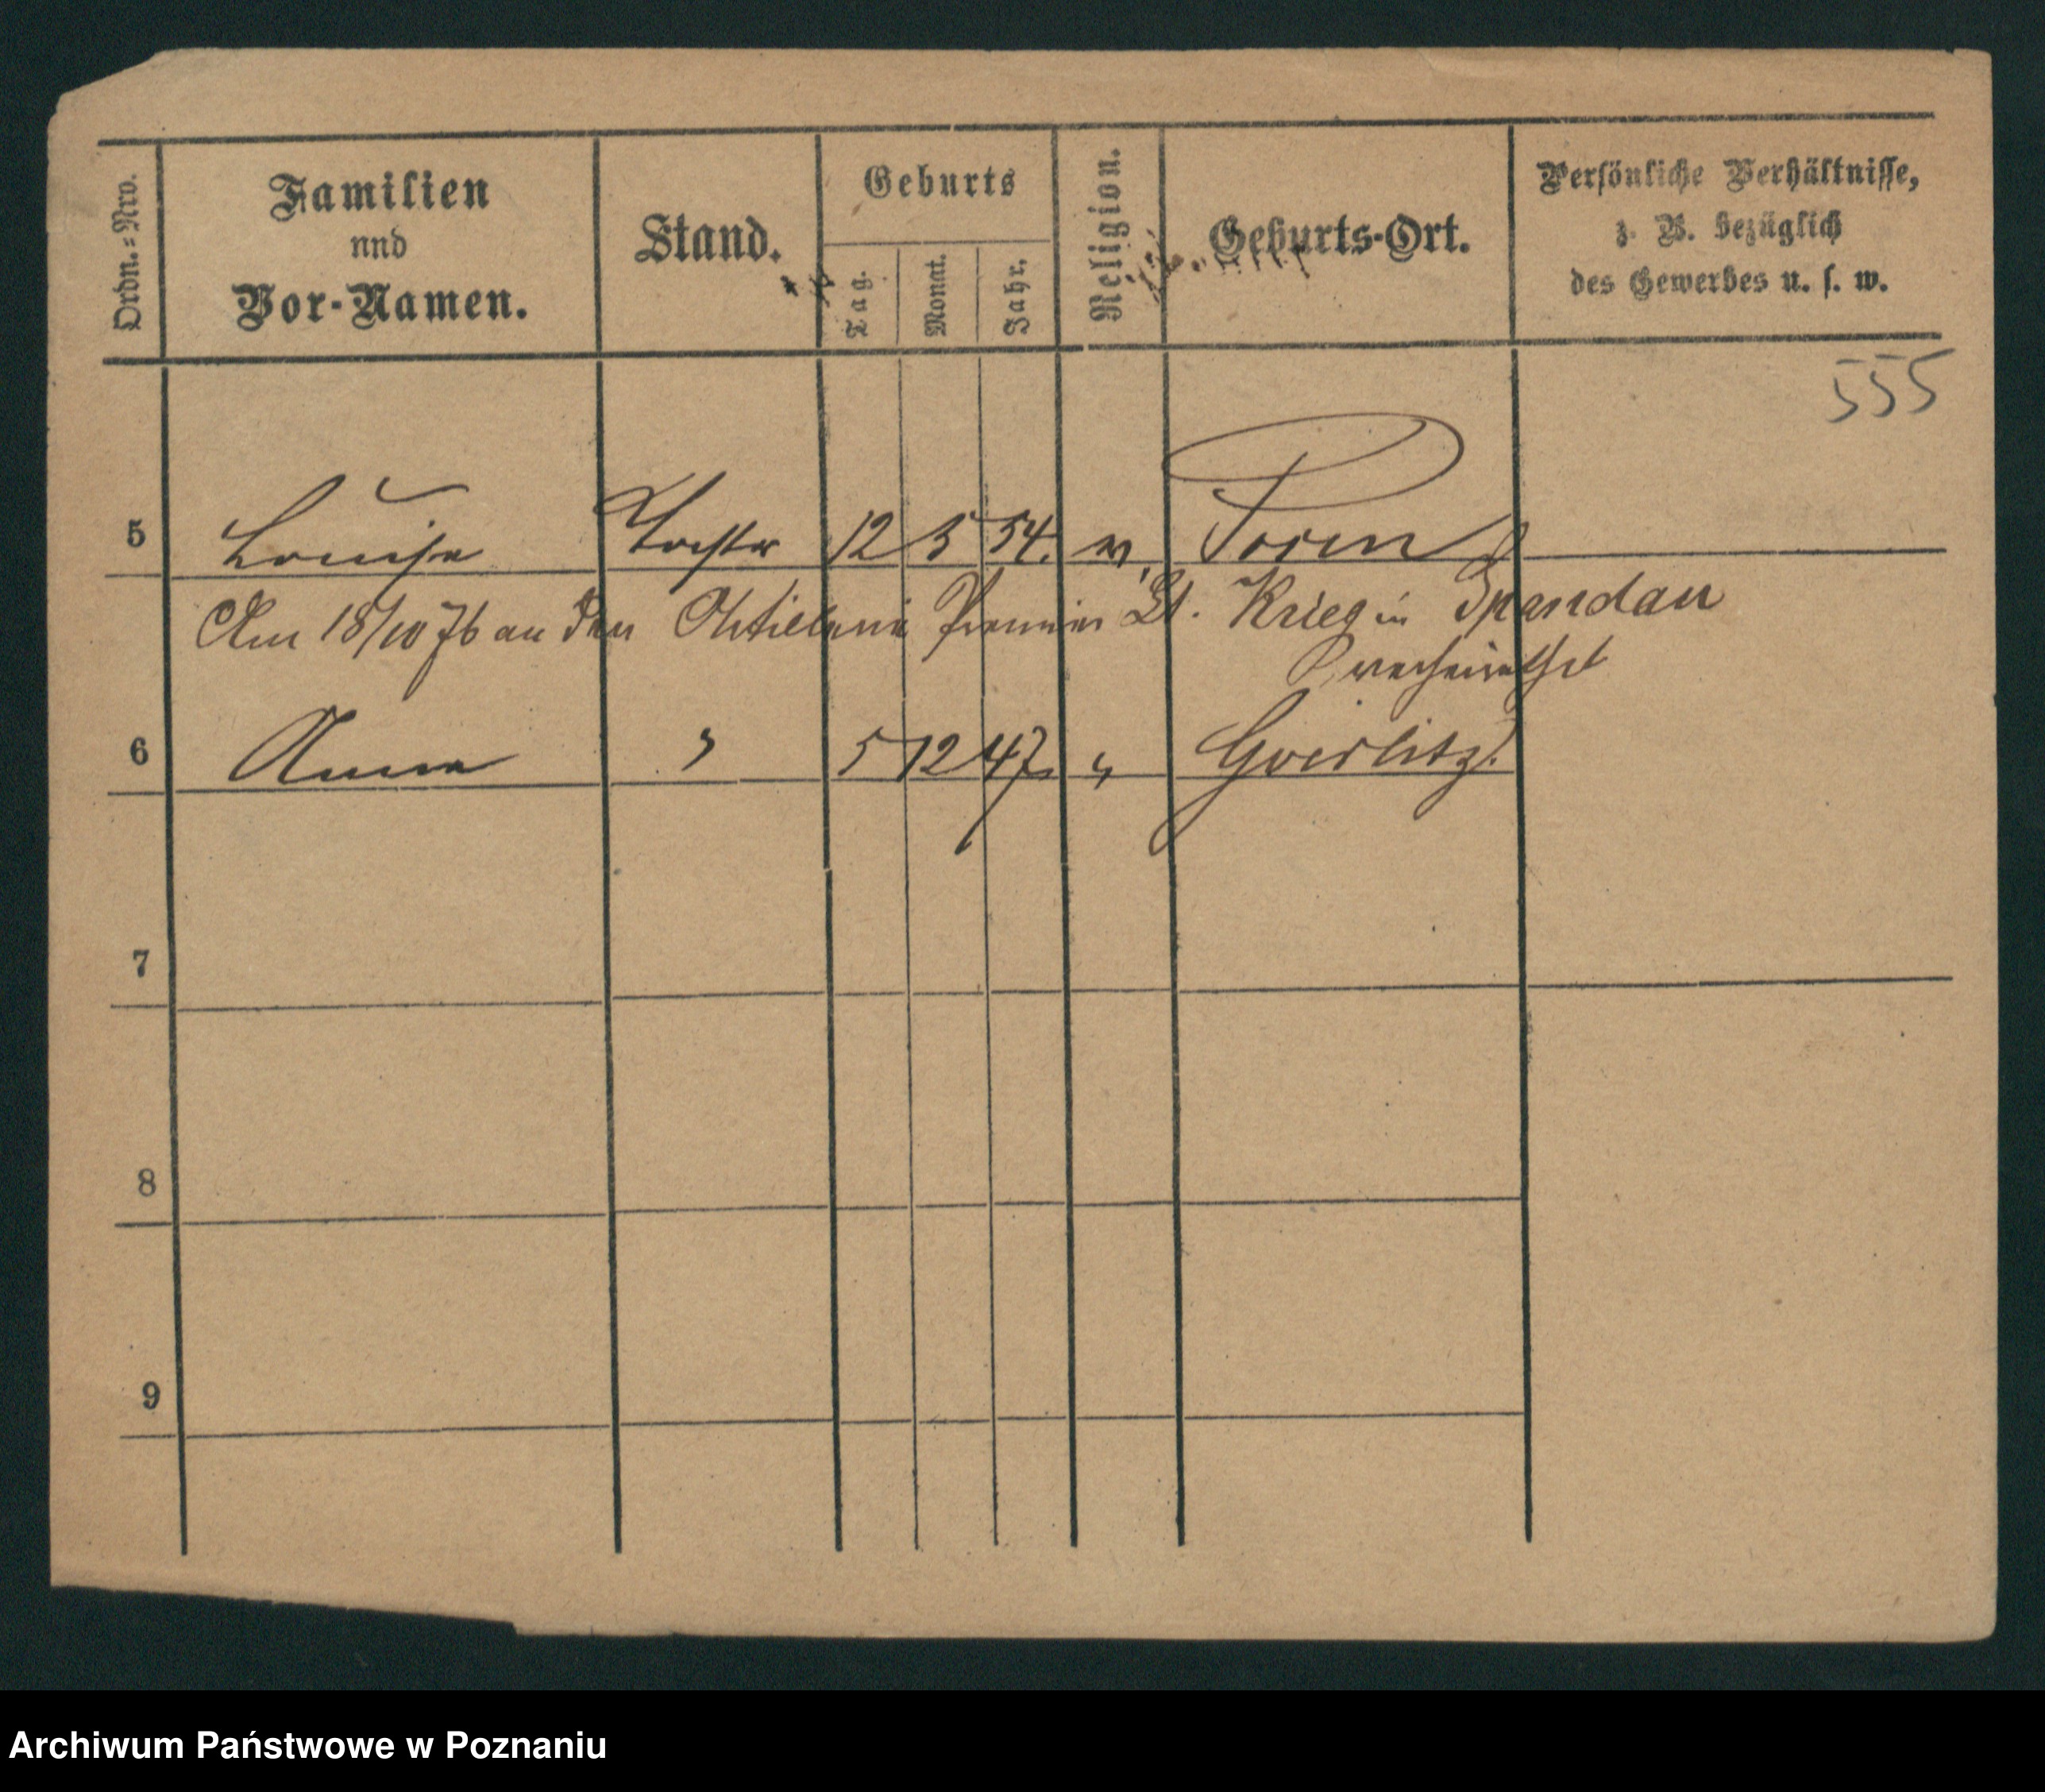 Ordn.=Nro.
Familien
nnd
Vor-Namen.
Stand.
Geburts
Tag.
Monat.
Jahr.
Religion.
Geburts-Ort.
Persönliche Verhältnisse,
z. B. bezüglich
des Gewerbes u. s. w.
555
5 Louise Tochter 12 5 54. Posen
Am 18/10 76 an den Artillerie Premier Lt. Krieg in Spandau
verheirathet
6 Anna " 5 12 47 " Goerlitz.
7
8
9
Archiwum Państwowe w Poznaniu